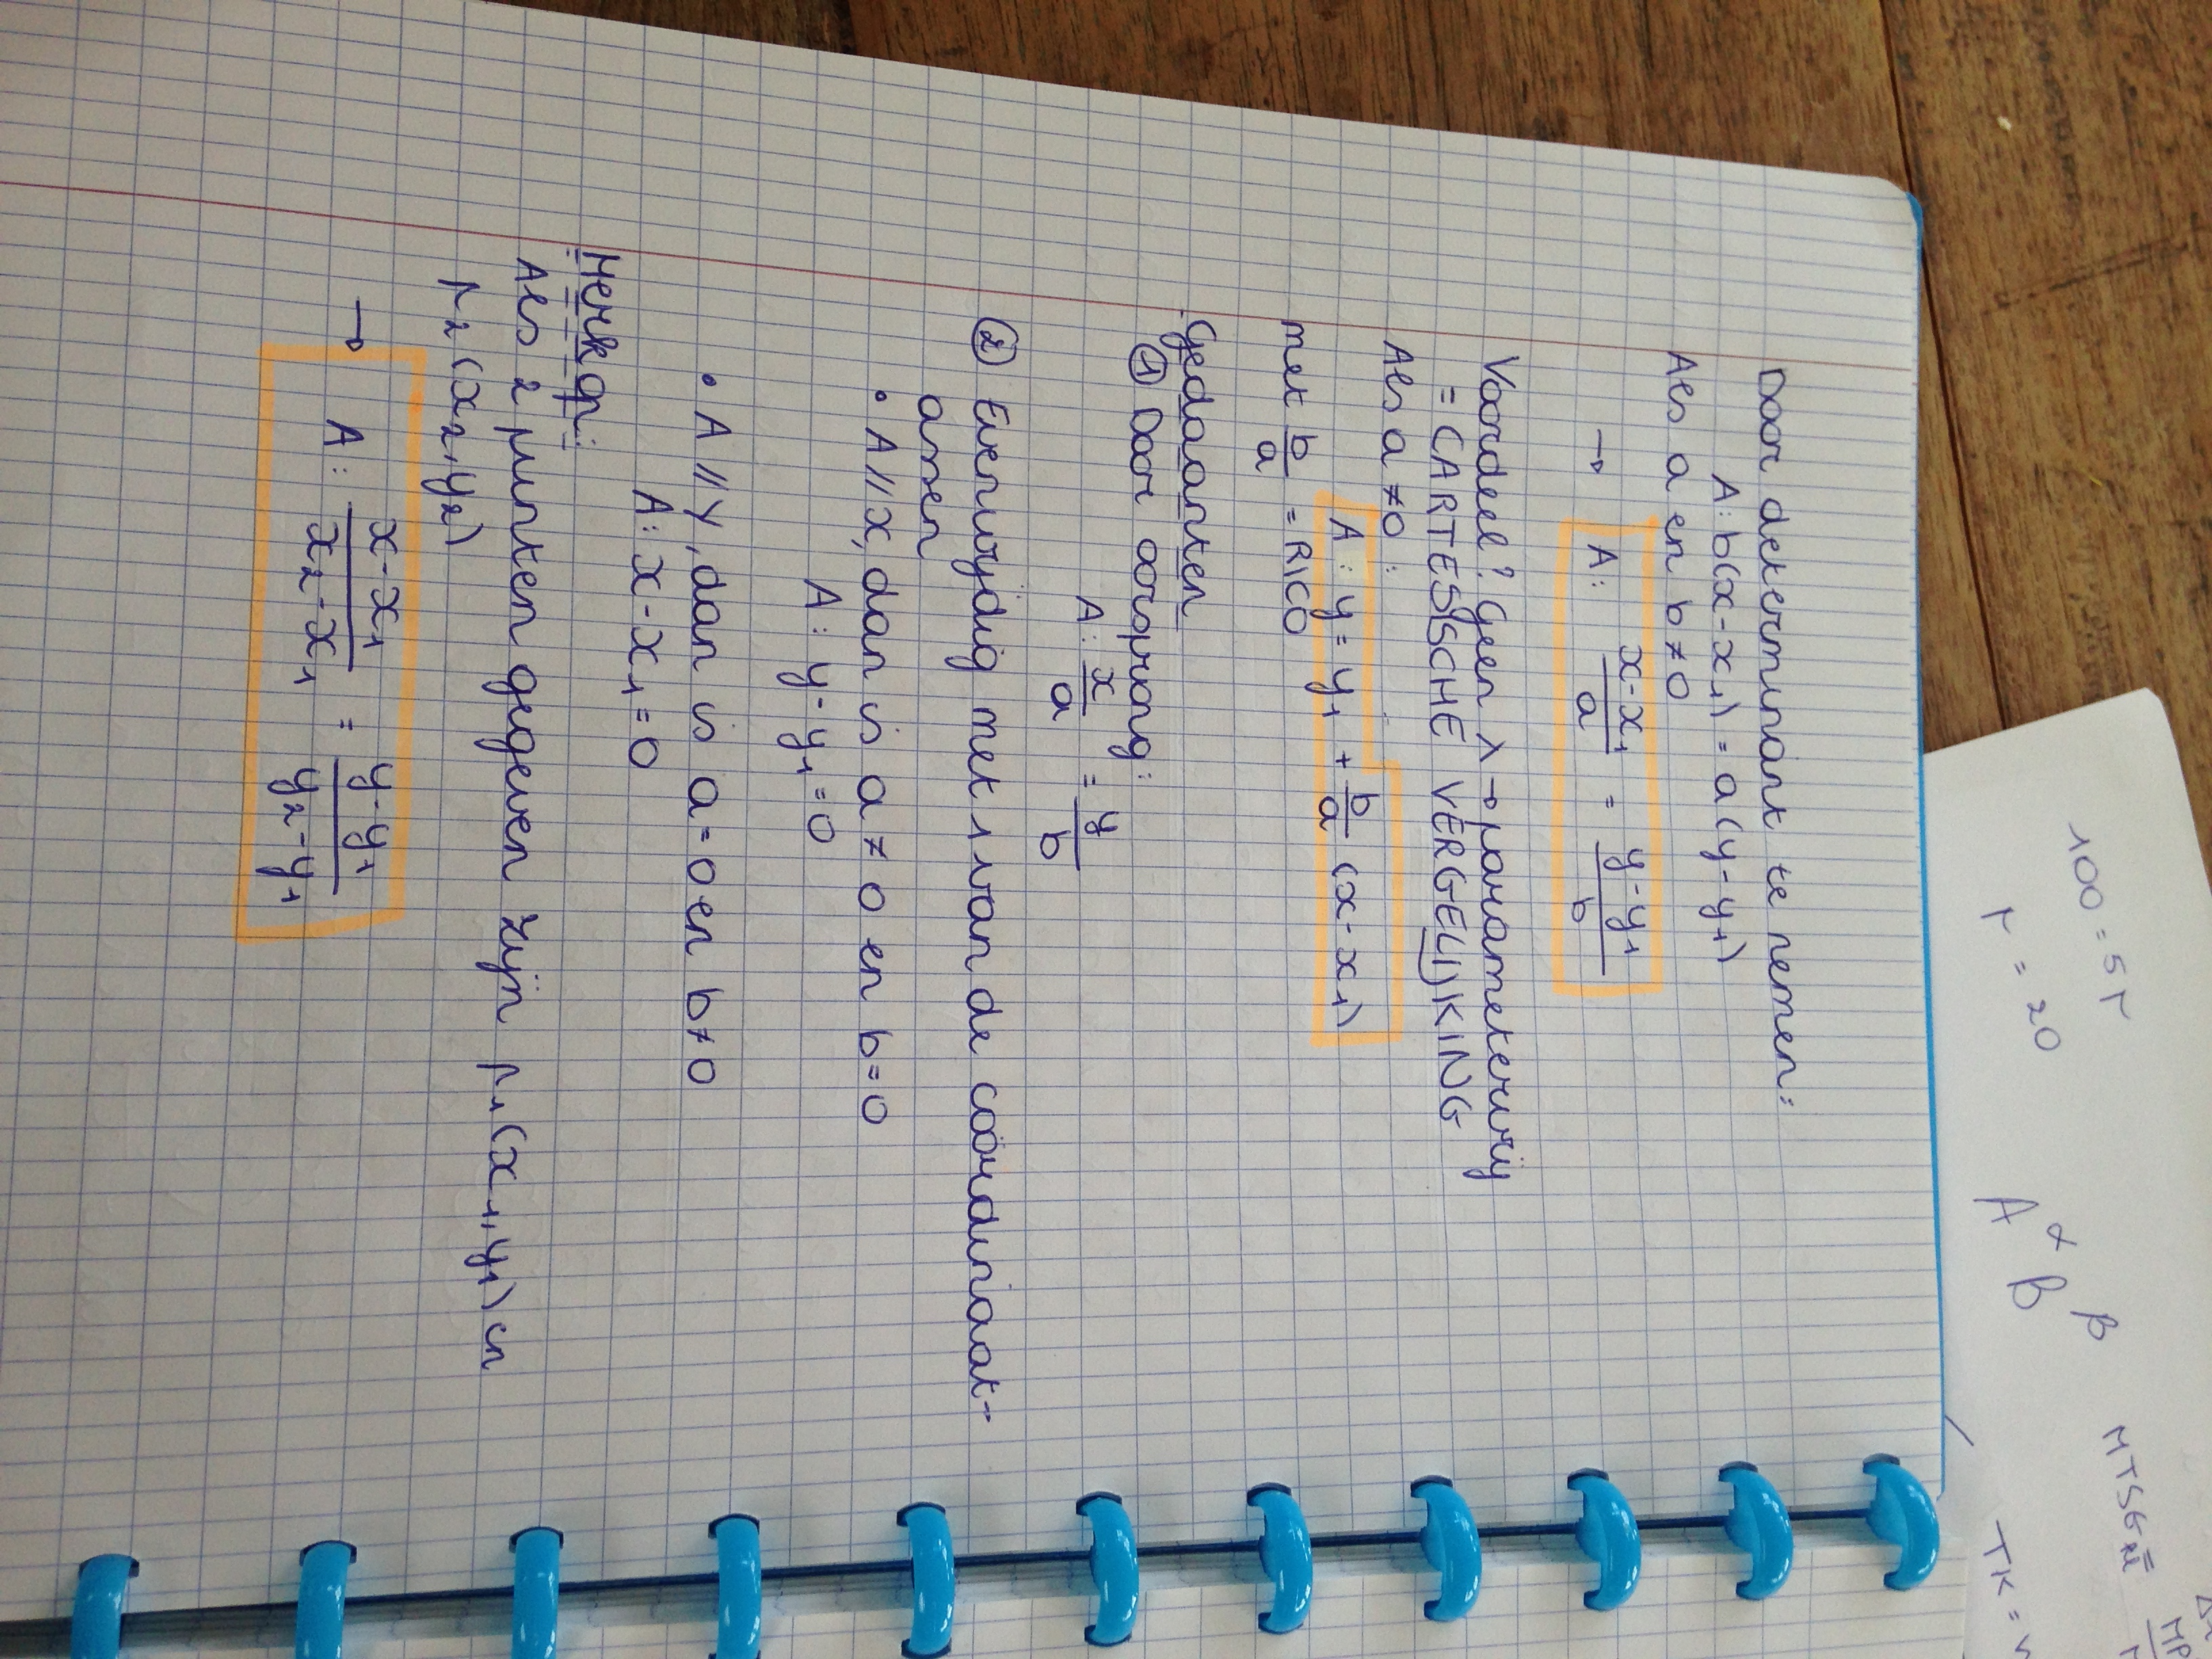 Door determinant te nemen:
A: b(x-x₁) = a(y-y₁)
Als a en b ≠ 0
→ A: (x-x₁)/a = (y-y₁)/b
Voordeel? Geen λ → parametervrij
= CARTESISCHE VERGELIJKING
Als a ≠ 0:
A: y = y₁ + b/a (x-x₁)
met b/a = RICO
Gedaanten
① Door oorsprong:
A: x/a = y/b
② Evenwijdig met 1 van de coördinaat-
assen
• A // x, dan is a ≠ 0 en b = 0
A: y - y₁ = 0
• A // y, dan is a = 0 en b ≠ 0
A: x - x₁ = 0
Merk op:
Als 2 punten gegeven zijn P₁(x₁,y₁) en
P₂(x₂,y₂)
→ A: (x-x₁)/(x₂-x₁) = (y-y₁)/(y₂-y₁)
100 = 5r
r = 20
A α B β
TK =